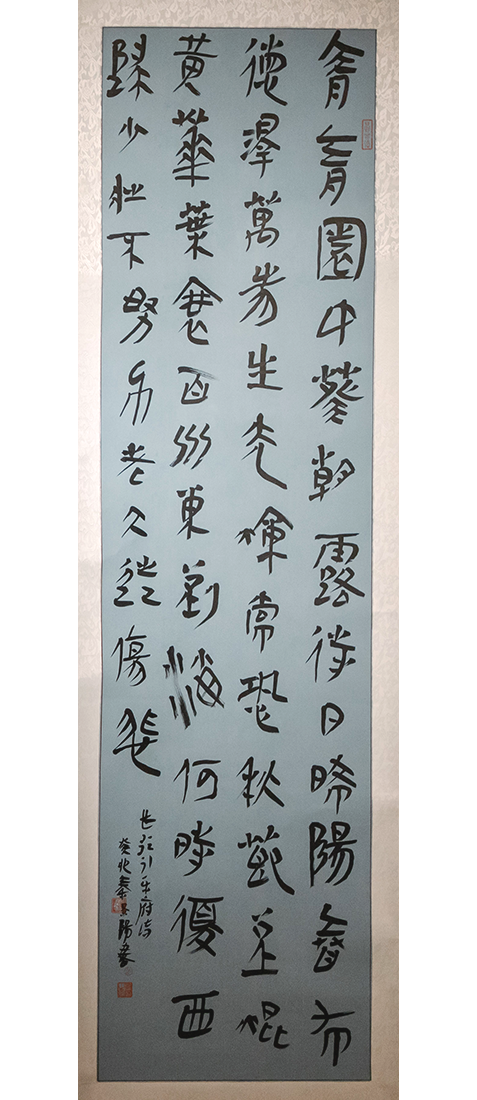 青青園中葵朝露待日晞陽春布
德澤萬物生光煇常恐秋節至焜
黄華葉衰百川東到海何時復西
歸少壯不努力老大徒傷悲
長歌行樂府詩